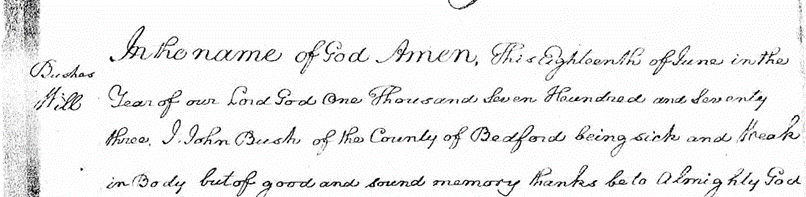 In the name of God Amen, This Eighteenth of June in the
Bushes
Will
Year of our Lord God One Thousand Seven Hundred and Seventy
three, I John Bush of the County of Bedford being sick and Weak
in Body but of good and sound memory thanks be to Almighty God